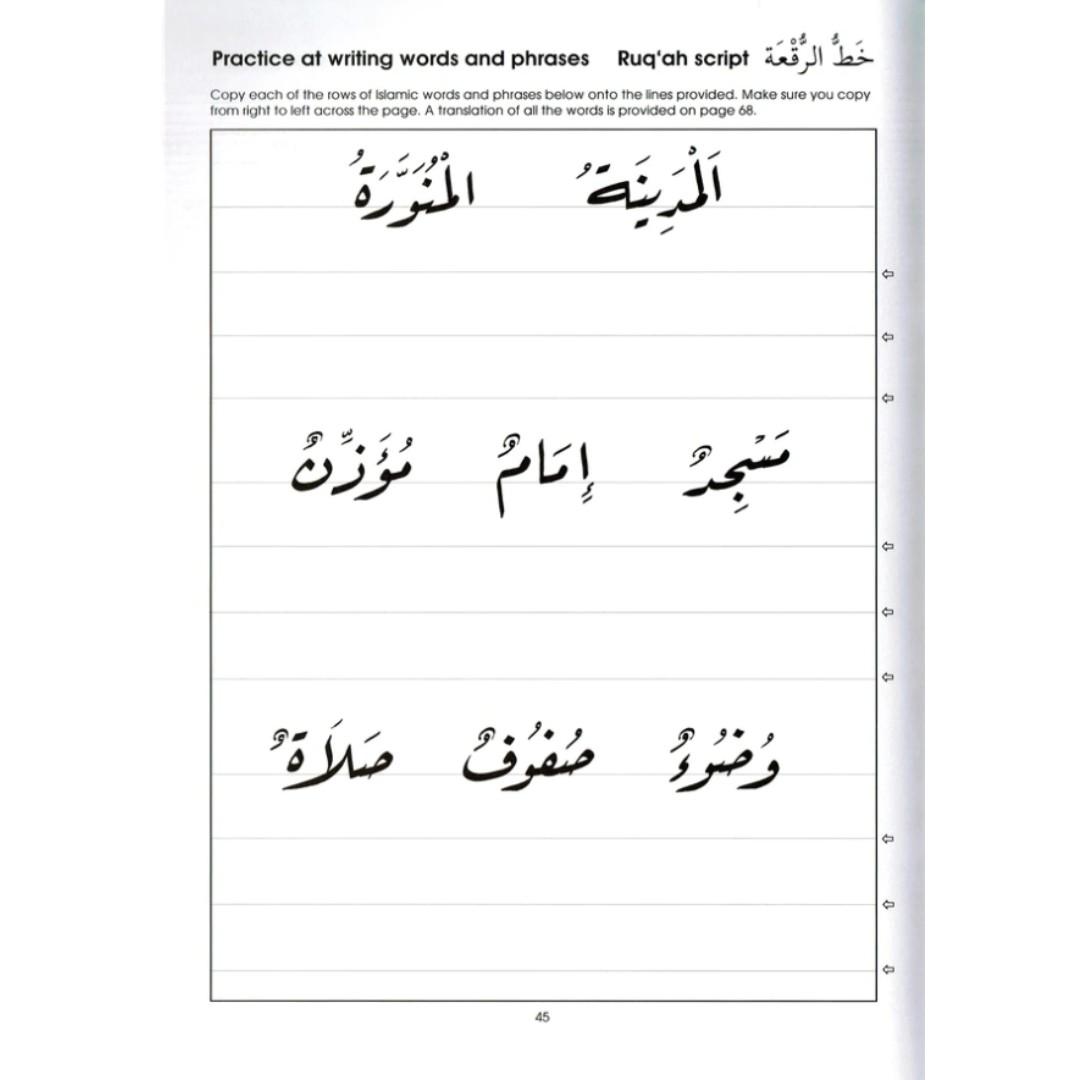 Practice at writing words and phrases Ruq‘ah script خَطُّ الرُّقْعَة
Copy each of the rows of Islamic words and phrases below onto the lines provided. Make sure you copy
from right to left across the page. A translation of all the words is provided on page 68.
اَلْمَدِينَةُ الْمُنَوَّرَةُ
مَسْجِدٌ إِمَامٌ مُؤَذِّنٌ
وُضُوءٌ صُفُوفٌ صَلَاةٌ
45